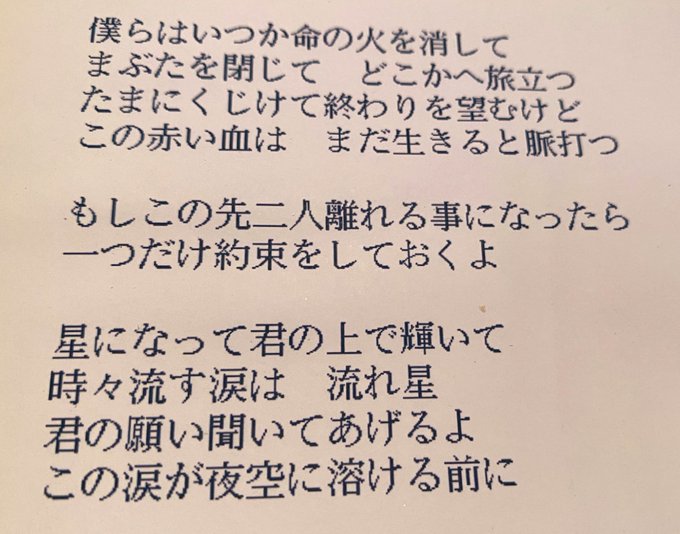 僕らはいつか命の火を消して
まぶたを閉じて　どこかへ旅立つ
たまにくじけて終わりを望むけど
この赤い血は　まだ生きると脈打つ
もしこの先二人離れる事になったら
一つだけ約束をしておくよ
星になって君の上で輝いて
時々流す涙は　流れ星
君の願い聞いてあげるよ
この涙が夜空に溶ける前に